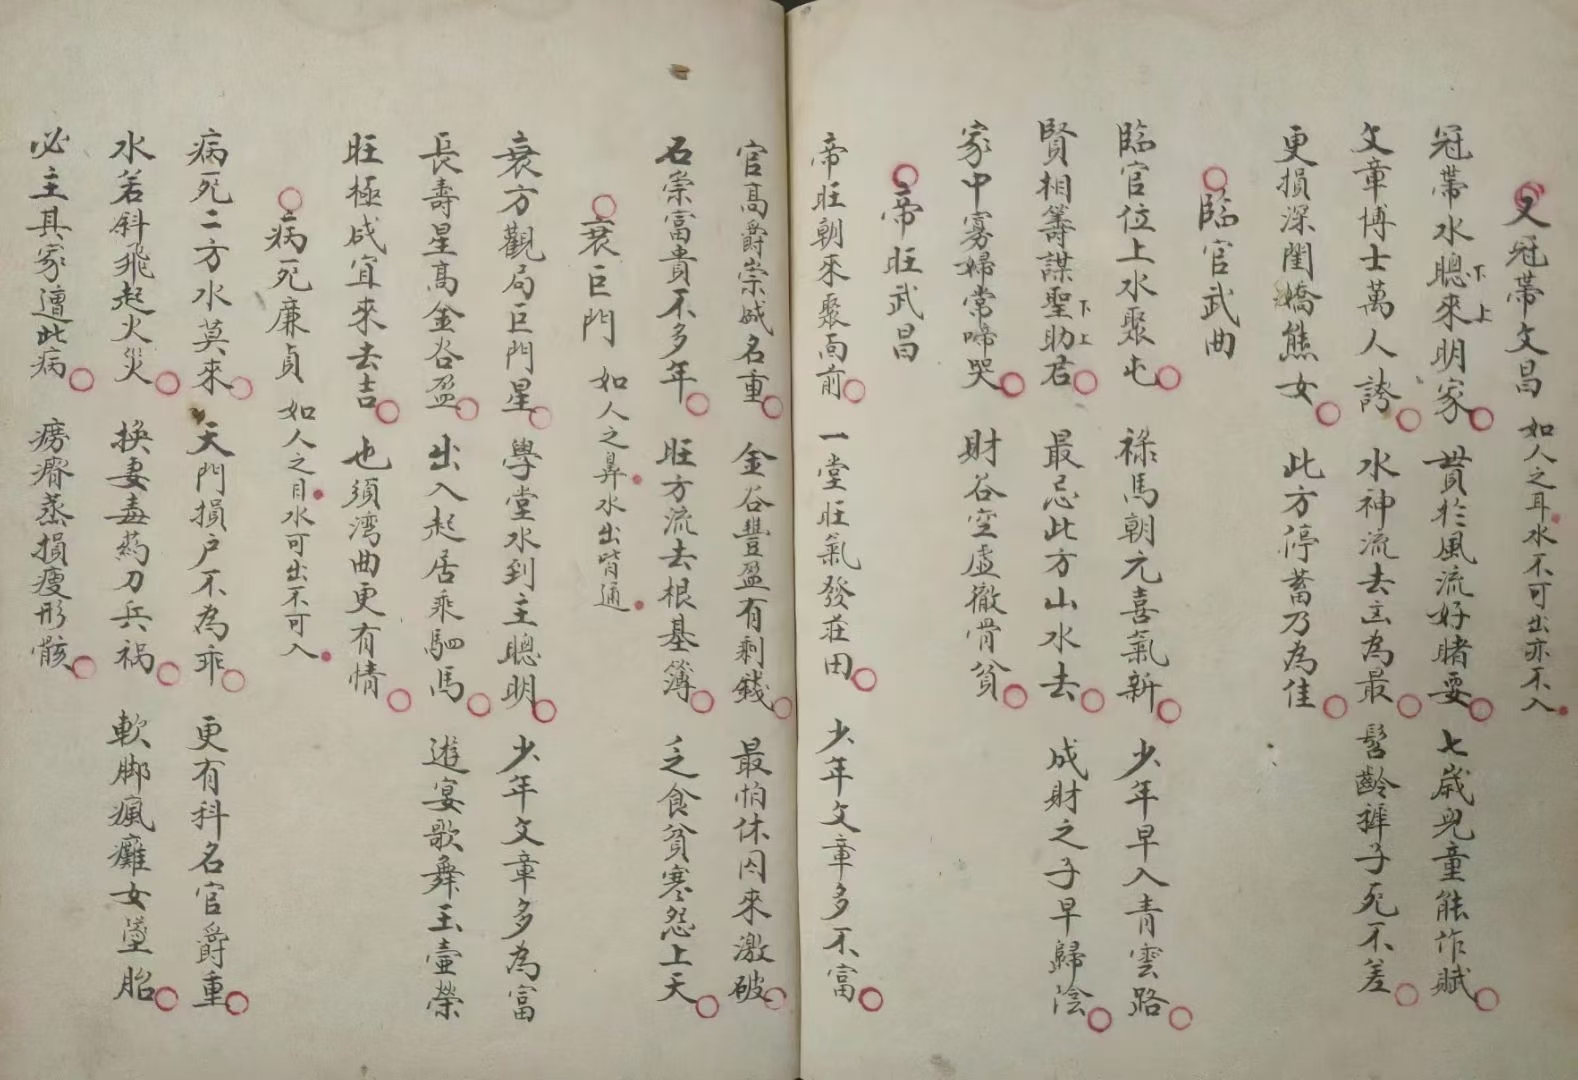 又冠帶文昌 如人之耳水不可出亦不入
冠帶水聰來明家 貫於風流好賭耍 七歲兒童能作賦
下上
文章博士萬人誇 水神流去立為最 髫齡稺子死不差
更損深閨嬌態女 此方停蓄乃為佳
臨官武曲
臨官位上水聚屯 祿馬朝元喜氣新 少年早入青雲路
賢相籌謀聖助君 最忌此方山水去 成財之子早歸陰
下上
家中寡婦常啼哭 財谷空虛徹骨貧
帝旺武昌
帝旺朝來聚面前 一堂旺氣發莊田 少年文章多不富
官高爵崇威名重 金谷豐盈有剩錢 最怕休囚來激破
石崇富貴不多年 旺方流去根基簿 乏食貧寒怨上天
衰巨門 如人之鼻水出皆通
衰方觀局巨門星 學堂水到主聰明 少年文章多為富
長壽星高金谷盈 出入起居乘駟馬 遊宴歌舞玉壼榮
旺極咸宜來去吉 也須湾曲更有情
病死廉貞 如人之目水可出不可入
病死二方水莫來 天門損户不為乖 更有科名官爵重
水若斜飛起火災 換妻毒药刀兵禍 軟脚瘋癱女墮胎
必主具家遭此病 癆瘵蒸損瘦形骸